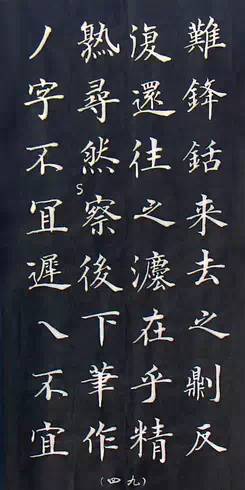 難鋒銛來去之𠟭反
復還往之灋在乎精
熟尋然察後下筆作
丿字不冝遲乀不宜
(四九)